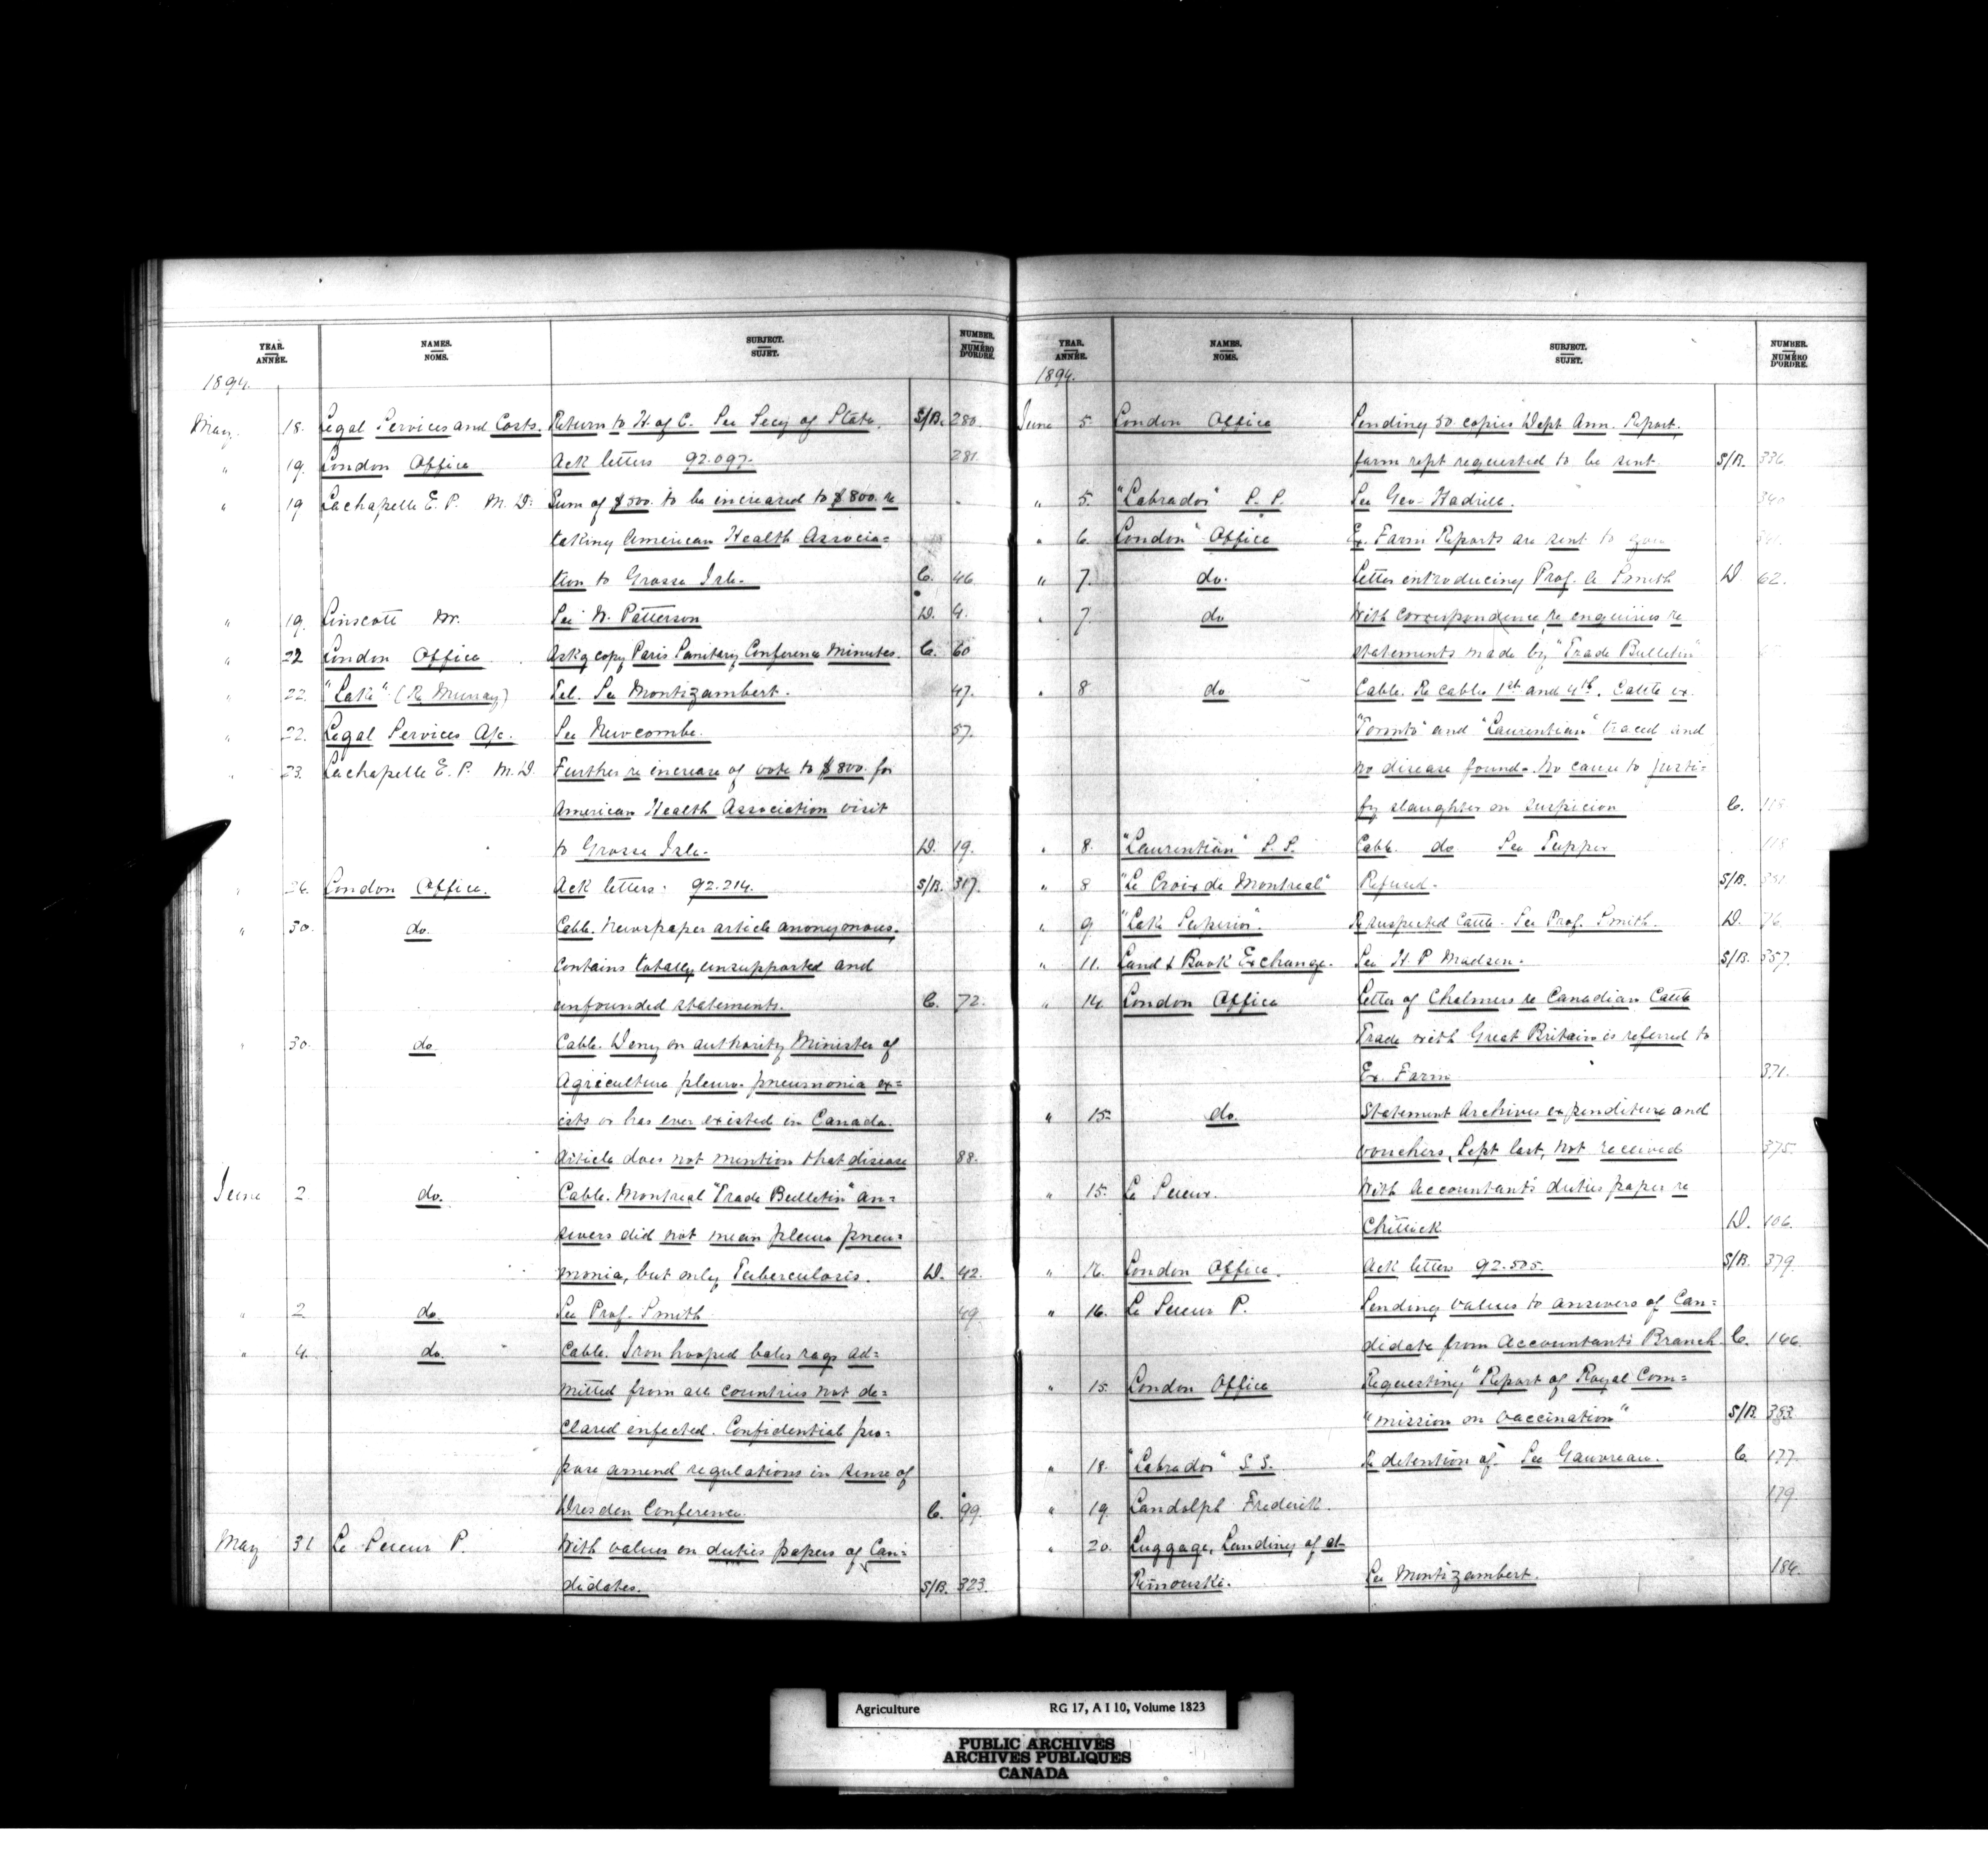 YEAR. ANNÉE. NAMES. NOMS. SUBJECT. SUJET. NUMBER. NUMÉRO D'ORDRE.
1894.
May 18. Legal Services and Costs. Return to H. of C. See Secy of State. S/B. 280.
" 19. London Office Ack letters 92.097. 281.
" 19 Lachapelle E. P. M. D. Sum of $500. to be increased to $800. re
taking American Health Associa=
tion to Grosse Isle. C. 46
" 19. Linscott Mr. See W. Patterson D. 4.
" 22 London Office Ask g copy Paris Sanitary Conference Minutes. C. 60
" 22. "Lake" (Re Murray) Tel. See Montizambert. 47.
" 22. Legal Services A/c. See Newcombe. 57.
" 23. Lachapelle E. P. M. D. Further re increase of vote to $800. for
American Health Association visit
to Grosse Isle. D. 19.
" 26. London Office. Ack letters. 92.214. S/B. 317.
" 30. do. Cable. Newspaper article anonymous.
Contains totally unsupported and
unfounded statements. C. 72.
" 30. do Cable. Deny on authority Minister of
Agriculture pleuro-pneumonia ex=
ists or has ever existed in Canada.
Article does not mention that disease 88.
June 2 do. Cable. Montreal "Trade Bulletin" an=
swers did not mean pleuro pneu=
monia, but only Tuberculosis. D. 42.
" 2 do. See Prof. Smith 49
" 4. do. Cable. Iron hooped bales rags ad=
mitted from all countries not de=
clared infected. Confidential pro=
pose amend regulations in sense of
Dresden Conference. C. 99.
May 31 Le Sueur P. With values on duties papers of Can=
didates. S/B. 323.
YEAR. ANNÉE. NAMES. NOMS. SUBJECT. SUJET. NUMBER. NUMÉRO D'ORDRE.
1894.
June 5. London Office Sending 50 copies Dept Ann. Report.
farm rept requested to be sent S/B. 336
" 5. "Labrador" S. S. See Geo. Hadrill. 340
" 6. London Office Ex. Farm Reports are sent to you 341.
" 7. do. Letter introducing Prof. A Smith D 62.
" 7 do With correspondence re enquiries re
statements made by "Trade Bulletin"
" 8 do. Cable. Re cables 1st and 4th. Cattle ex.
"Toronto" and "Laurentian" traced and
no disease found. No cause to justi=
fy slaughter on suspicion C. 118
" 8. "Laurentian" S. S. Cable do See Tupper 118
" 8 "La Croix de Montreal" Refused. S/B. 351
" 9. "Lake Superior". Re suspected Cattle. See Prof. Smith. D. 76
" 11. Land & Book Exchange. See H P Madsen. S/B. 357.
" 14. London Office Letter of Chalmers re Canadian Cattle
Trade with Great Britain is referred to
Ex. Farm 371.
" 15 do. Statement Archives expenditure and
vouchers, Sept last, not received 375.
" 15. Le Sueur. With Accountant's duties paper re
Chittick D. 106.
" 16. London Office. Ack letters 92.505. S/B. 379.
" 16. Le Sueur P. Sending values to answers of Can=
didate from Accountant's Branch. C. 146
" 15 London Office Requesting "Report of Royal Com=
"mission on Vaccination" S/B. 383.
" 18. "Labrador" S S. Re detention of. See Gauvreau. C. 177.
" 19. Landolph Frederick. 179.
" 20. Luggage, Landing of at
Rimouski. See Montizambert. 184.
Agriculture RG 17, A I 10, Volume 1823
PUBLIC ARCHIVES
ARCHIVES PUBLIQUES
CANADA